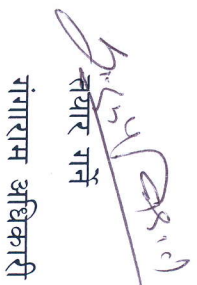 तयार गर्ने
गंगाराम अधिकारी